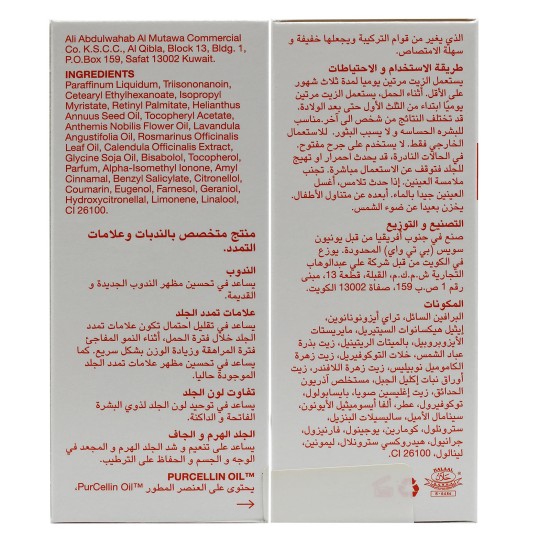 Ali Abdulwahab Al Mutawa Commercial
Co. K.S.C.C., Al Qibla, Block 13, Bldg. 1,
P.O.Box 159, Safat 13002 Kuwait.
INGREDIENTS
Paraffinum Liquidum, Triisononanoin,
Cetearyl Ethylhexanoate, Isopropyl
Myristate, Retinyl Palmitate, Helianthus
Annuus Seed Oil, Tocopheryl Acetate,
Anthemis Nobilis Flower Oil, Lavandula
Angustifolia Oil, Rosmarinus Officinalis
Leaf Oil, Calendula Officinalis Extract,
Glycine Soja Oil, Bisabolol, Tocopherol,
Parfum, Alpha-Isomethyl Ionone, Amyl
Cinnamal, Benzyl Salicylate, Citronellol,
Coumarin, Eugenol, Farnesol, Geraniol,
Hydroxycitronellal, Limonene, Linalool,
CI 26100.
منتج متخصص بالندبات وعلامات
التمدد.
الندوب
يساعد في تحسين مظهر الندوب الجديدة و
القديمة.
علامات تمدد الجلد
يساعد في تقليل احتمال تكون علامات تمدد
الجلد خلال فترة الحمل، أثناء النمو المفاجئ
فترة المراهقة وزيادة الوزن بشكل سريع. كما
يساعد في تحسين مظهر علامات تمدد الجلد
الموجودة حاليا.
تفاوت لون الجلد
يساعد في توحيد لون الجلد لذوي البشرة
الفاتحة و الداكنة.
الجلد الهرم و الجاف
يساعد على تنعيم و شد الجلد الهرم و المجعد في
الوجه و الجسم و الحفاظ على الترطيب.
PURCELLIN OIL™
يحتوى على العنصر المطور PurCellin Oil™.
الذي يغير من قوام التركيبة ويجعلها خفيفة و
سهلة الامتصاص.
طريقة الاستخدام و الاحتياطات
يستعمل الزيت مرتين يوميا لمدة ثلاث شهور
على الأقل. أثناء الحمل، يستعمل الزيت مرتين
يوميًا ابتداء من الثلث الأول حتى بعد الولادة.
قد تختلف النتائج من شخص الى آخر.مناسب
للبشره الحساسه و لا يسبب البثور. للاستعمال
الخارجي فقط. لا يستخدم على جرح مفتوح.
في الحالات النادرة، قد يحدث احمرار او تهيج
للجلد فتوقف عن الاستعمال مباشرة. تجنب
ملامسة العينين. إذا حدث تلامس، أغسل
العينين جيدا بالماء. أبعده عن متناول الأطفال.
يخزن بعيدا عن ضوء الشمس.
التصنيع و التوزيع
صنع في جنوب أفريقيا من قبل يونيون
سويس (بي تي واي) المحدودة. يوزع
في الكويت من قبل شركة علي عبدالوهاب
التجارية ش.م.ك.م، القبلة، قطعة 13، مبنى
رقم 1 ص.ب 159، صفاة 13002 الكويت.
المكونات
البرافين السائل، تراي أيزونونانوين،
إيثيل هيكسانوات السيتيريل، مايريستات
الأيزوبروبيل، بالميتات الريتينيل، زيت بذرة
عباد الشمس، خلات التوكوفيريل، زيت زهرة
الكاموميل نوبيليس، زيت زهرة اللافندر، زيت
أوراق نبات إكليل الجبل، مستخلص آذريون
الحدائق، زيت إغليسين صويا، بايسابولول،
توكوفيرول، عطر، ألفا أيسوميثيل الأيونون،
سينامال الأميل، ساليسيلات البنزيل،
سترونلول، كومارين، يوجينول، فارنيزول،
جرانيول، هيدروكسي سترونلال، ليمونين،
لينالول، CI 26100.